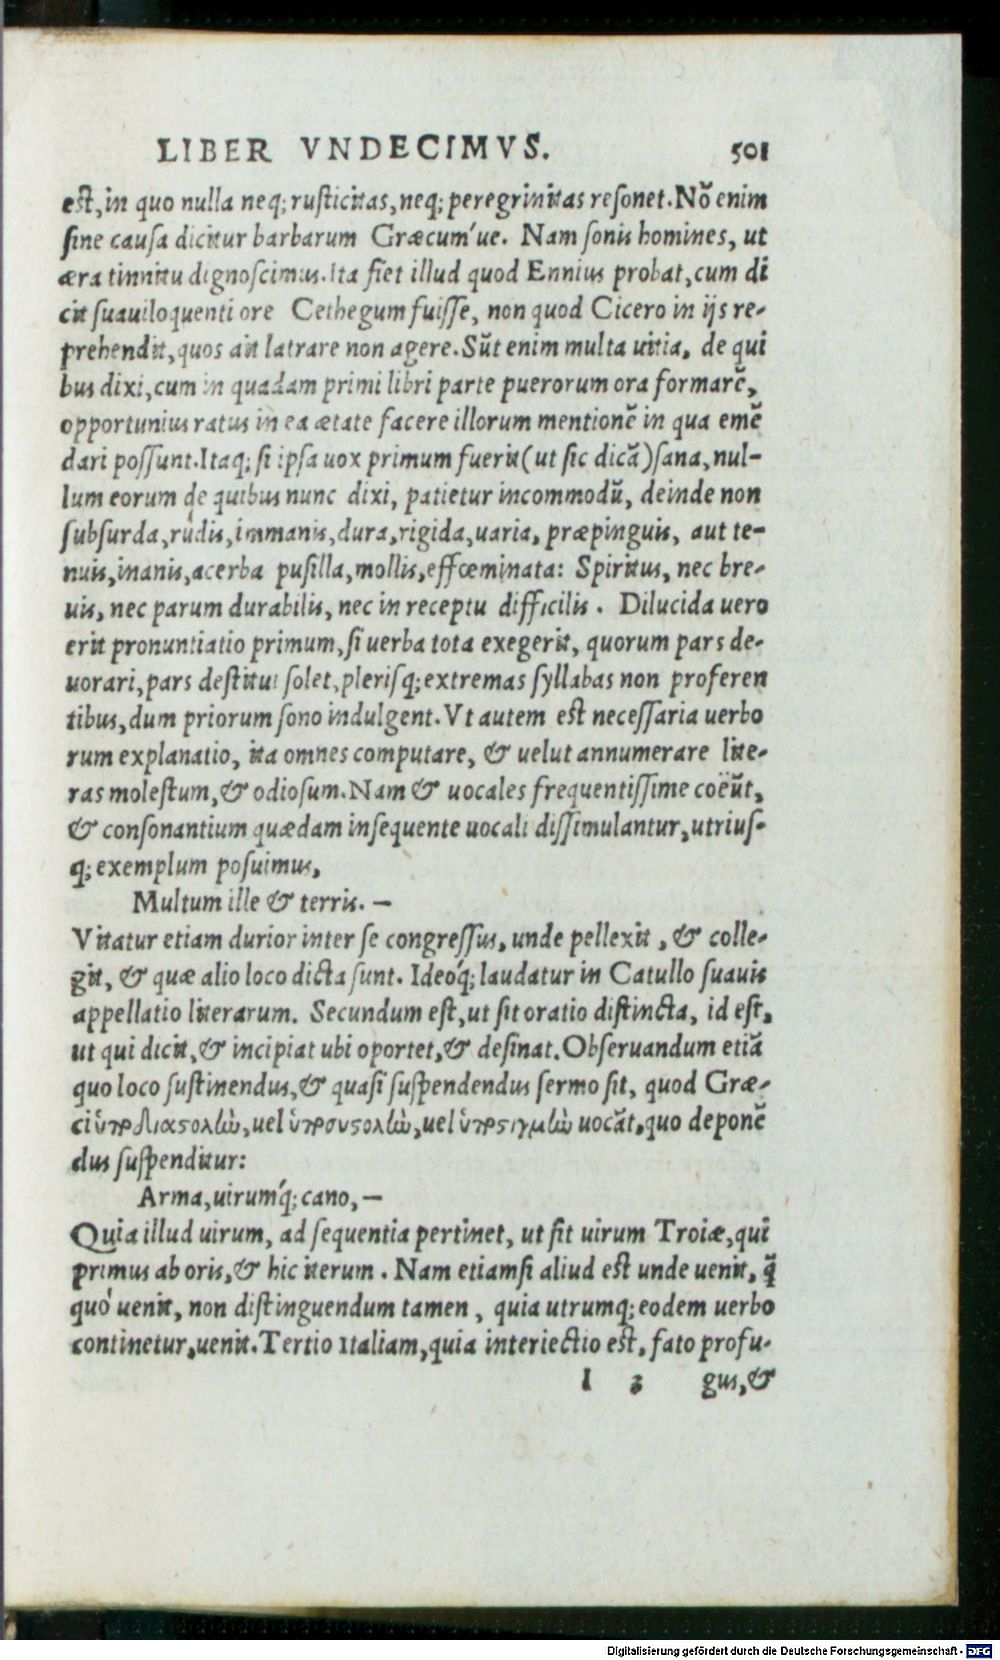 LIBER VNDECIMVS. 501
est, in quo nulla neq; rusticitas, neq; peregrinitas resonet. Nõ enim
sine causa dicitur barbarum Græcum'ue. Nam sonis homines, ut
æra tinnitu dignoscimus. Ita fiet illud quod Ennius probat, cum di
cit suauiloquenti ore Cethegum fuisse, non quod Cicero in ijs re-
prehendit, quos ait latrare non agere. Sũt enim multa uitia, de qui
bus dixi, cum in quadam primi libri parte puerorum ora formarẽ,
opportunius ratus in ea ætate facere illorum mentionẽ in qua emẽ
dari possunt. Itaq; si ipsa uox primum fuerit (ut sic dicã) sana, nul-
lum eorum de quibus nunc dixi, patietur incommodũ, deinde non
subsurda, rudis, immanis, dura, rigida, uaria, præpinguis, aut te-
nuis, inanis, acerba pusilla, mollis, effœminata: Spiritus, nec bre-
uis, nec parum durabilis, nec in receptu difficilis. Dilucida uero
erit pronuntiatio primum, si uerba tota exegerit, quorum pars de-
uorari, pars destitui solet, plerisq; extremas syllabas non proferen
tibus, dum priorum sono indulgent. Vt autem est necessaria uerbo
rum explanatio, ita omnes computare, & uelut annumerare lite-
ras molestum, & odiosum. Nam & uocales frequentissime coëũt,
& consonantium quædam insequente uocali dissimulantur, utrius-
q; exemplum posuimus,
Multum ille & terris. —
Vitatur etiam durior inter se congressus, unde pellexit, & colle-
git, & quæ alio loco dicta sunt. Ideóq; laudatur in Catullo suauis
appellatio literarum. Secundum est, ut sit oratio distincta, id est,
ut qui dicit, & incipiat ubi oportet, & desinat. Obseruandum etiã
quo loco sustinendus, & quasi suspendendus sermo sit, quod Græ-
ci ὑποδιαστολὼ, uel ὑποστολὼ, uel ὑποστιγμὼ uocãt, quo deponẽ
dus suspenditur:
Arma, uirumq́; cano, —
Quia illud uirum, ad sequentia pertinet, ut sit uirum Troiæ, qui
primus ab oris, & hic iterum. Nam etiamsi aliud est unde uenit, q̃
quò uenit, non distinguendum tamen, quia utrumq; eodem uerbo
continetur, uenit. Tertio Italiam, quia interiectio est, fato profu-
I 3 gus, &
Digitalisierung gefördert durch die Deutsche Forschungsgemeinschaft - DFG